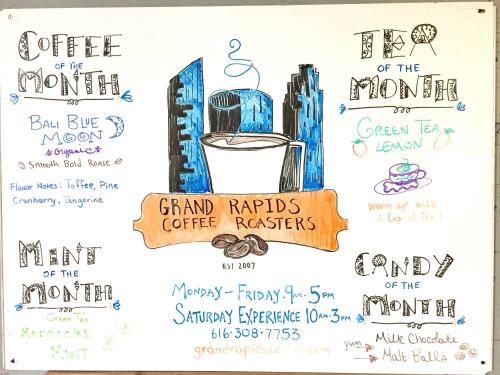 COFFEE
OF THE
MONTH
BALI BLUE
MOON
Organic
Smooth Bold Roast
Flavor Notes: Toffee, Pine
Cranberry, Tangerine
MINT
OF THE
MONTH
Green Tea
Moroccan
MINT
GRAND RAPIDS
COFFEE ROASTERS
EST 2007
MONDAY - FRIDAY. 9AM. 5PM
SATURDAY EXPERIENCE 10AM. 3PM
616-308-7753
TEA
OF THE
MONTH
GREEN TEA
LEMON
Warm up with
a Cup of Tea!
CANDY
OF THE
MONTH
yum
Milk Chocolate
Malt Balls